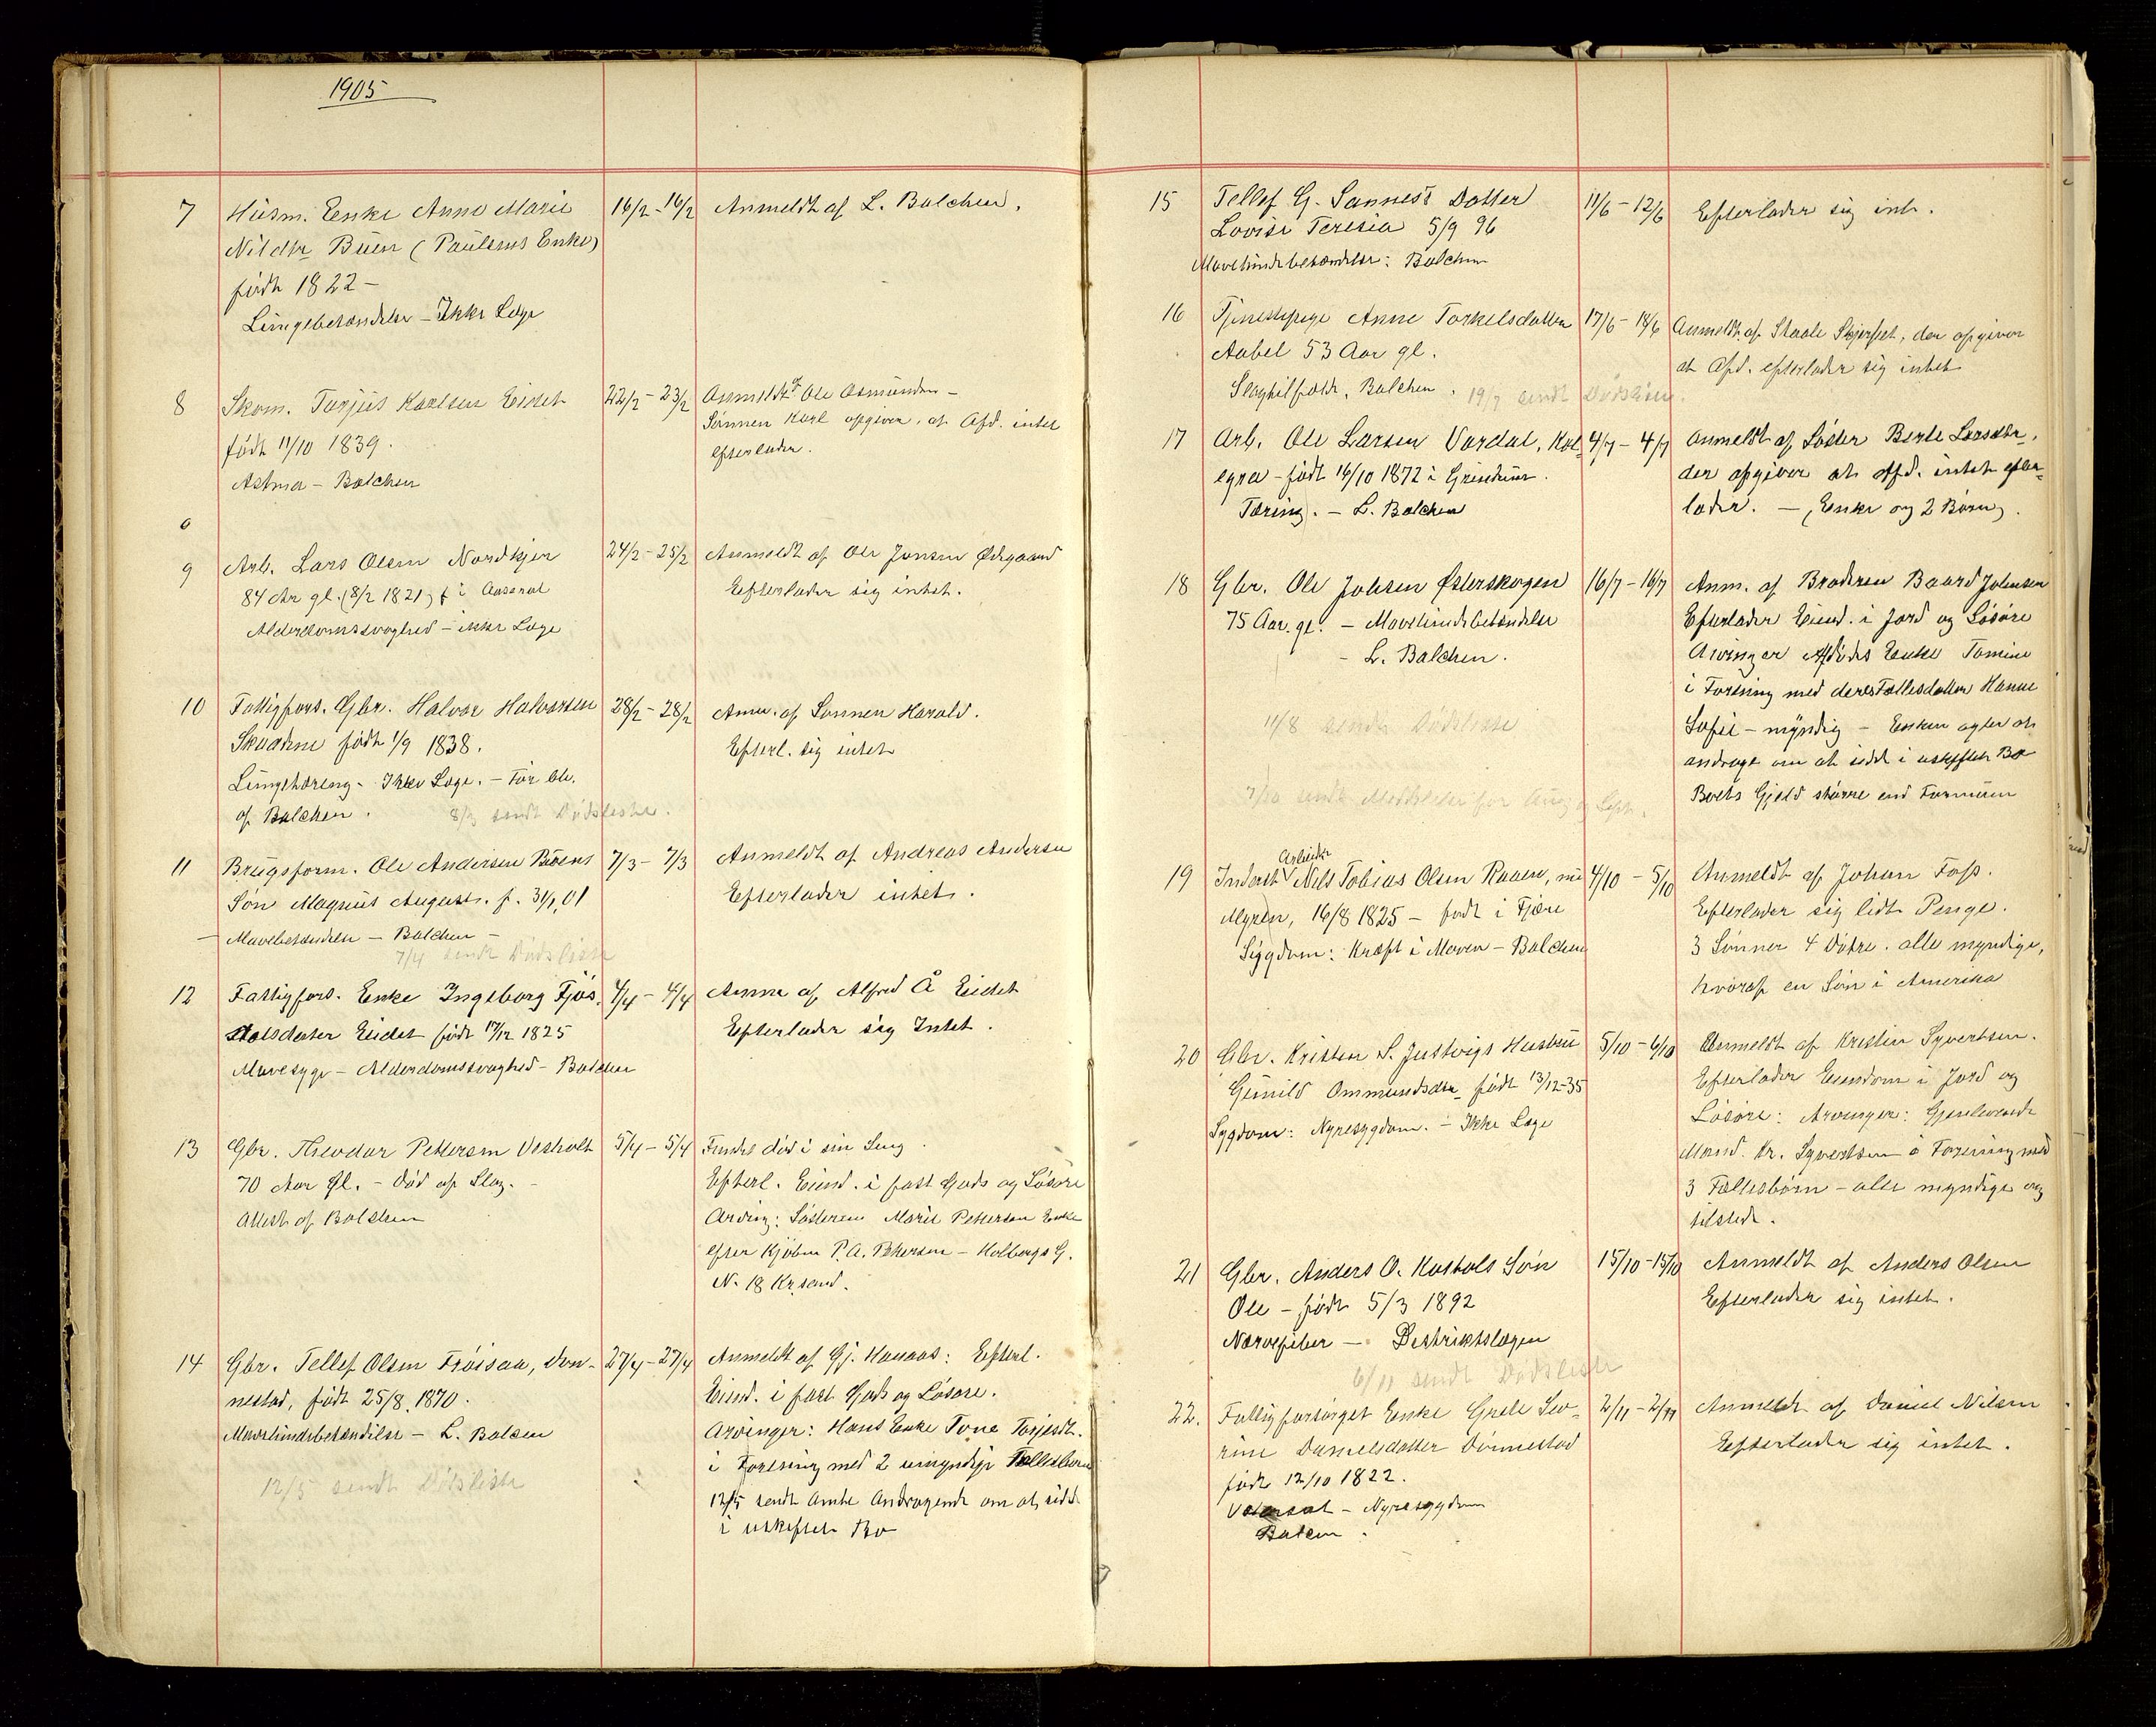 1905
7 Husm. Enke Anne Marie 16/2 - 16/2 Anmeldt af L. Balchen.
Nilsdtr Buen (Paulsens Enke)
født 1822 -
Lungebetændelse - Ikke Læge
8 Skom. Tarjus Karlsen Eidet 22/2 - 23/2 Anmeldt af Ole Osmundsen -
født 11/10 1839. Sønnen Karl opgiver, at Afd. intet
Astma - Balchen efterlader.
9 Arb. Lars Olsen Nordkjer 24/2 - 25/2 Anmeldt af Ole Jensen Ødegaard
84 Aar gl. (8/2 1821) f i Aaseral Efterlader sig intet.
Alderdomssvaghed - ikke Læge
10 Fattigfors. Gbr. Halvor Halvorsen 28/2 - 28/2 Anm. af Sønnen Harald.
født 1/9 1838. Efterl. sig intet
Lungetæring - Ikke Læge. - Før beh.
af Balchen. 8/3 sendt Dødsliste.
11 Brugsform. Ole Andersen Bøens 7/3 - 7/3 Anmeldt af Andreas Andersen
Søn Magnus August. f. 31/1 01 Efterlader intet.
Mavebetændelse - Balchen -
7/4 sendt Dødsliste
12 Fattigfors. Enke Ingeborg Fjøs- 4/4 - 4/4 Anm af Alfred Å Eidet
datter Eidet født 17/12 1825 Efterlader sig Intet.
Mavesyge - Alderdomssvaghed - Balchen
13 Gbr. Theodor Pettersen Vesholt 5/4 - 5/4 Fundet død i sin Seng.
70 Aar gl. - død af Slag. - Efterl. Eiend. i fast Gods og Løsøre
Attest af Balchen Arving: Søsteren Marie Pettersen Enke
efter Kjøbm P.A. Pettersen - Holbergs G.
N. 18 Kr.sand.
14 Gbr. Tellef Olsen Frøisaa, Døn- 27/4 - 27/4 Anmeldt af Gj. Hanaas: Efterl.
nestad, født 25/8. 1870. Eiend. i fast Gods og Løsøre.
Mavehindebetændelse - L. Balcen Arvinger: Hans Enke Tone Torjesdt.
12/5 sendt Dødsliste i Forening med 2 umyndige Fællesbørn
12/5 sendt Amtet Andragende om at sidde
i uskiftet Bo
15 Tellef G. Sannes's Datter 11/6 - 12/6 Efterlader sig int.
Lovise Teresia 5/9 96
Mavehindebetændelse: Balchen
16 Tjenestepige Anne Torkelsdatter 17/6 - 18/6 Anmeldt af Staale, der opgiver
Aabel 53 Aar gl. at Afd. efterlader sig intet
Slagtilfælde. Balchen. 19/7 sendt Dødsliste.
17 Arb. Ole Larsen Vardal, Kol- 4/7 - 4/7 Anmeldt af Søster Berte Larsdtr,
egra - født 16/10 1872 i Grindum. der opgiver at Afd. intet efter-
Tæring. - L. Balchen lader. - (Enke og 2 Børn).
18 Gbr. Ole Johsen Østerskogen 16/7 - 16/7 Anm. af Broderen Baard Johnsen
75 Aar. gl. - Mavehindebetændelse Efterlader Eiend. i Jord og Løsøre
- L. Balchen. Arvinger Afdødes Enke Tomine
i Forening med deres Fællesdatter Hanne
11/8 sendt Dødsliste Sofie - myndig - Enken agter at
andrage om at sidde i uskiftet Bo
7/10 sendt Meddelelse for Aug og Sept. Boets Gjeld større end Formuen
19 Inderst Arbeider Nils Tobias Olsen Raaen, nu 4/10 - 5/10 Anmeldt af Johan Foss.
Myren, 16/8 1825 - født i Fjære Efterlader sig lidt Penge.
Sygdom: Kræft i Maven - Balchen 3 Sønner 4 Døtre. alle myndige,
hvoraf en Søn i Amerika
20 Gbr. Kristen S. Justvigs Hustru 5/10 - 6/10 Anmeldt af Kristen Syvertsen.
Gunild Ommundsdtr født 13/12-35 Efterlader Eiendom i Jord og
Sygdom: Nyresygdom. - Ikke Læge Løsøre: Arvinger: Gjenlevende
Mand. Kr. Syvertsen i Forening med
3 Fællesbørn - alle myndige og
tilstede.
21 Gbr. Anders O. Kostøls Søn 15/10 - 15/10 Anmeldt af Anders Olsen
Ole - født 5/3 1892 Efterlader sig intet.
Nervefeber - Distriktslægen
6/11 sendt Dødsliste
22. Fattigforsørget Enke Grete Sev- 2/11 - 2/11 Anmeldt af Daniel Nilsen
rine Danielsdatter Dønnestad Efterlader sig intet.
født 12/10 1822.
Vattersot - Nyresygdom
Balcen.